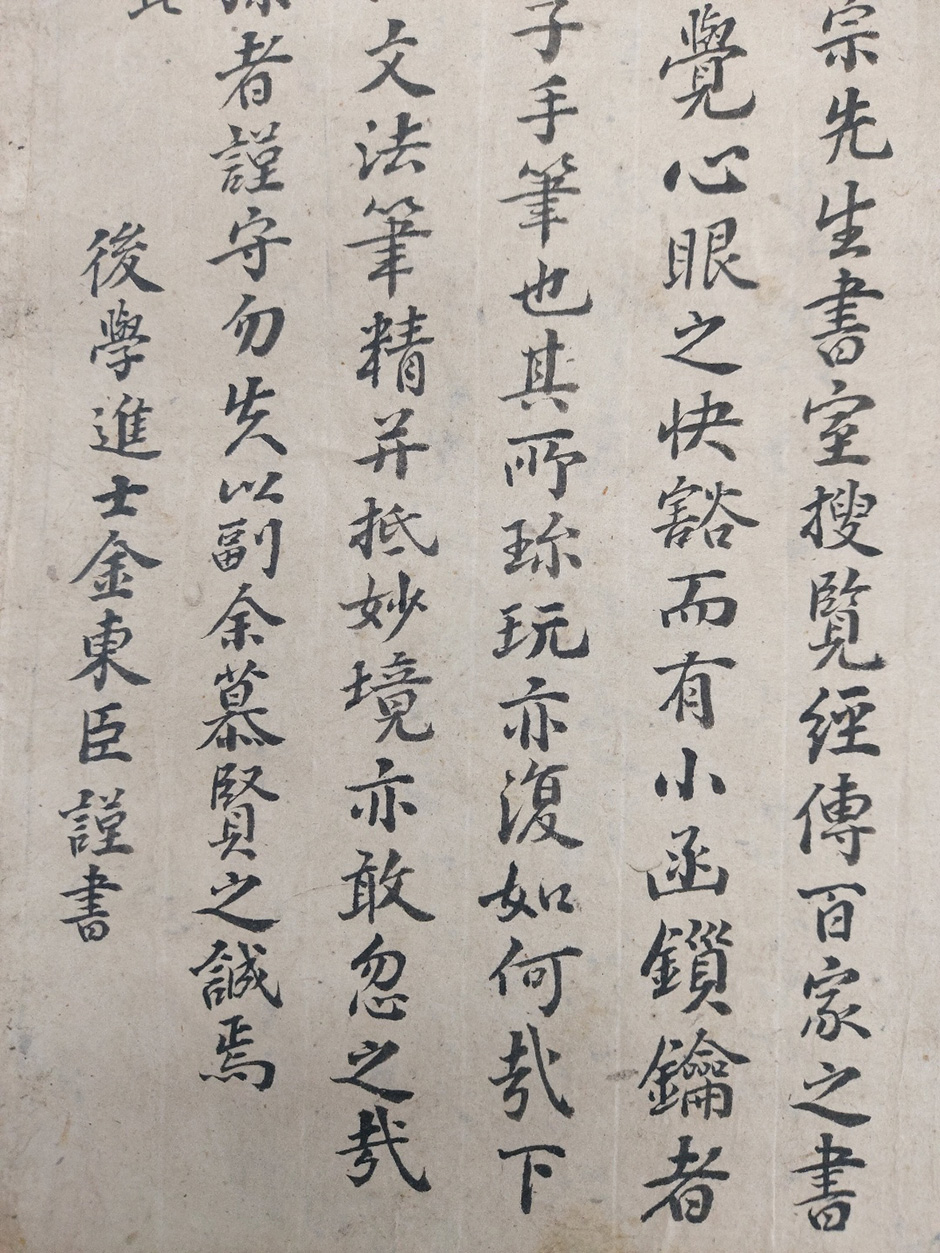 宗先生書室搜覽經傳百家之書
覺心眼之快豁而有小函鎖鑰者
子手筆也其所珎玩亦復如何哉下
文法筆精并抵妙境亦敢忽之哉
者謹守勿失以副余慕賢之誠焉
後學進士金東臣謹書